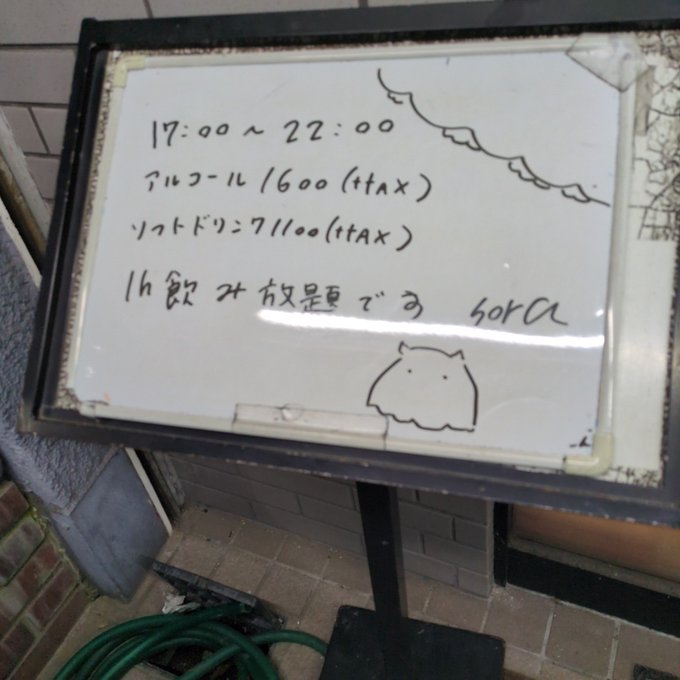 17:00～22:00
アルコール 1600(+tAX)
ソフトドリンク 1100(+tAX)
1h 飲み放題です sora